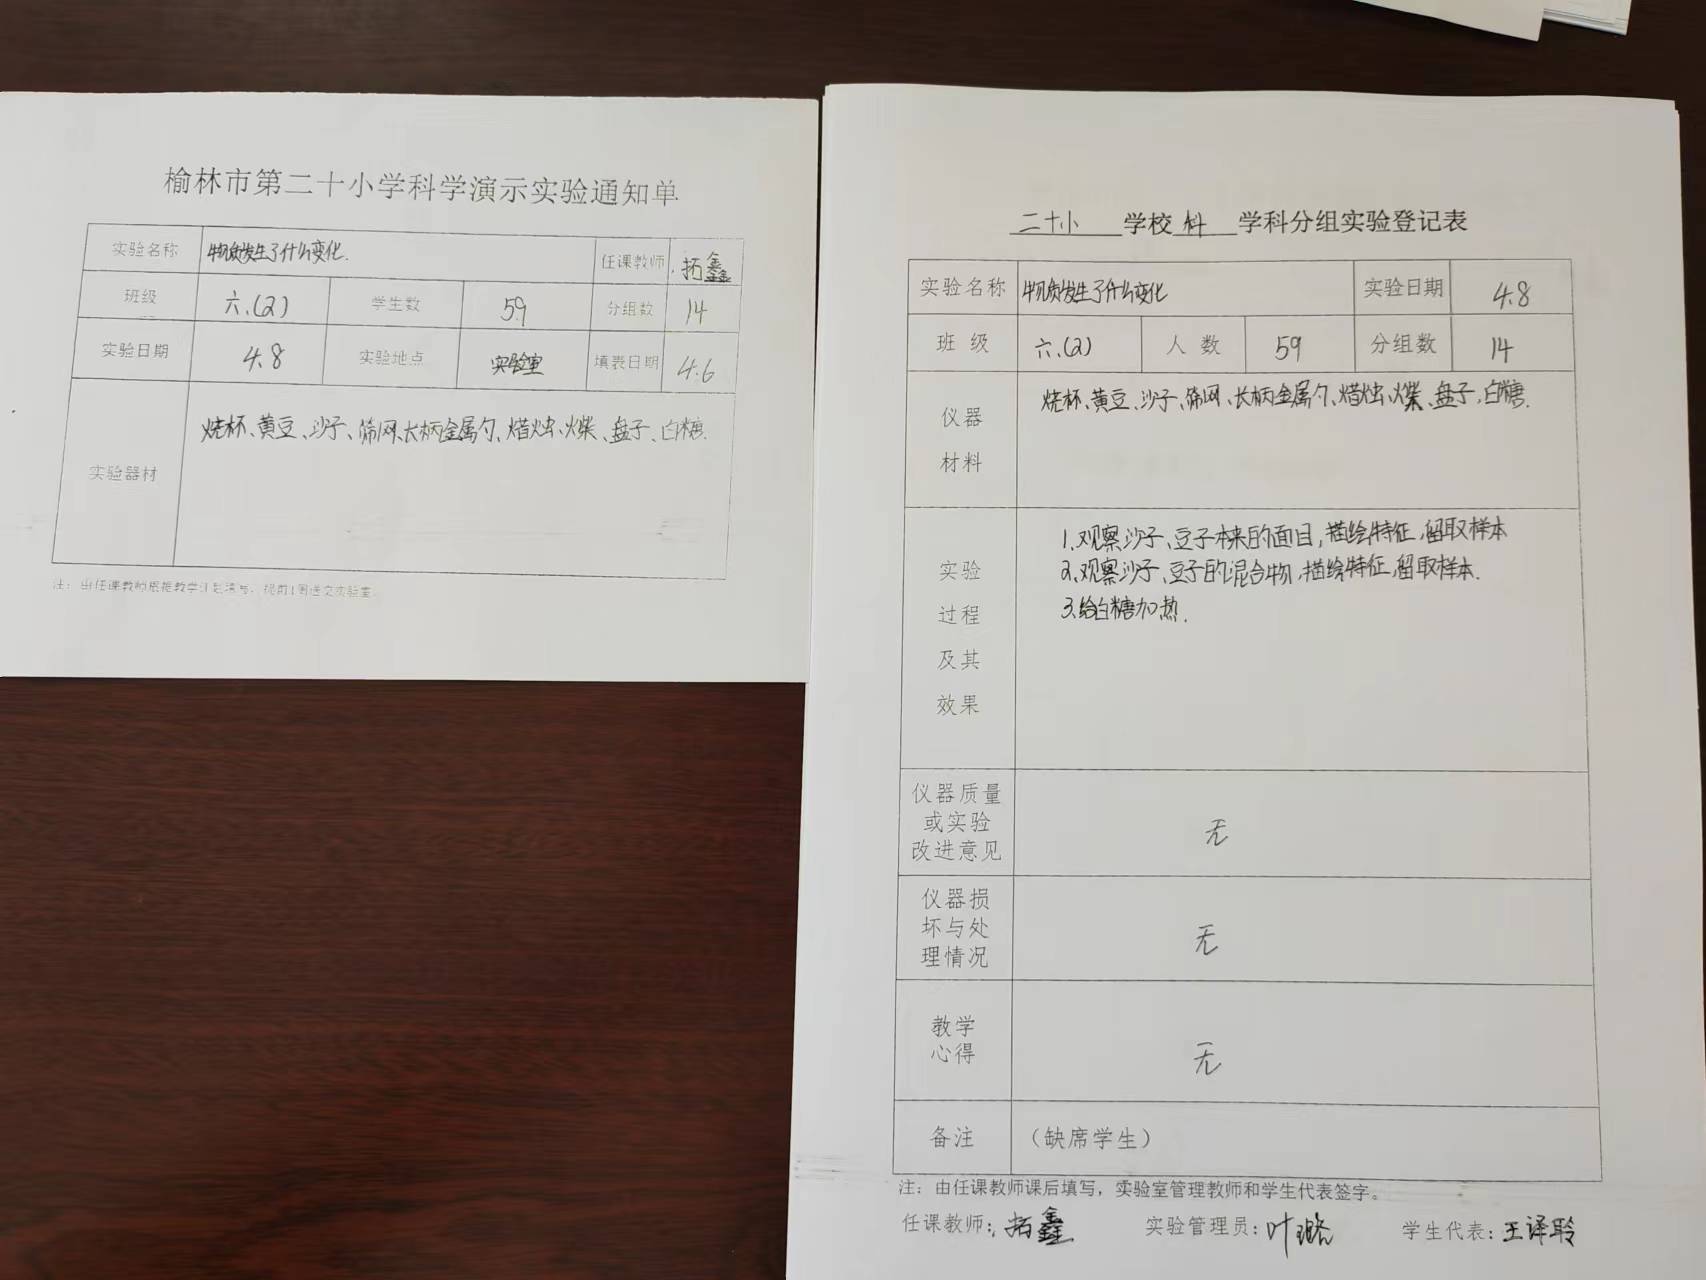 榆林市第二十小学科学演示实验通知单
实验名称 物质发生了什么变化. 任课教师 拓鑫
班级 六.(2) 学生数 59 分组数 14
实验日期 4.8 实验地点 实验室 填表日期 4.6
实验器材 烧杯、黄豆、沙子、筛网、长柄金属勺、蜡烛、火柴、盘子、白糖.
注：由任课教师根据教学计划填写，提前1周送交实验室。
二十小 学校 科 学科分组实验登记表
实验名称 物质发生了什么变化 实验日期 4.8
班级 六.(2) 人数 59 分组数 14
仪器
材料
烧杯、黄豆、沙子、筛网、长柄金属勺、蜡烛、火柴、盘子、白糖.
实验
过程
及其
效果
1.观察沙子、豆子本来的面目,描绘特征,留取样本
2.观察沙子、豆子的混合物,描绘特征,留取样本.
3.给白糖加热.
仪器质量
或实验
改进意见
无
仪器损
坏与处
理情况
无
教学
心得
无
备注 （缺席学生）
注：由任课教师课后填写，实验室管理教师和学生代表签字。
任课教师：拓鑫 实验管理员：叶璐 学生代表：王译聆